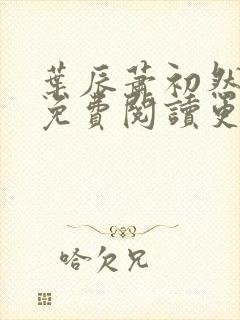 葉辰蕭初然
免費閱讀更
哈欠兄